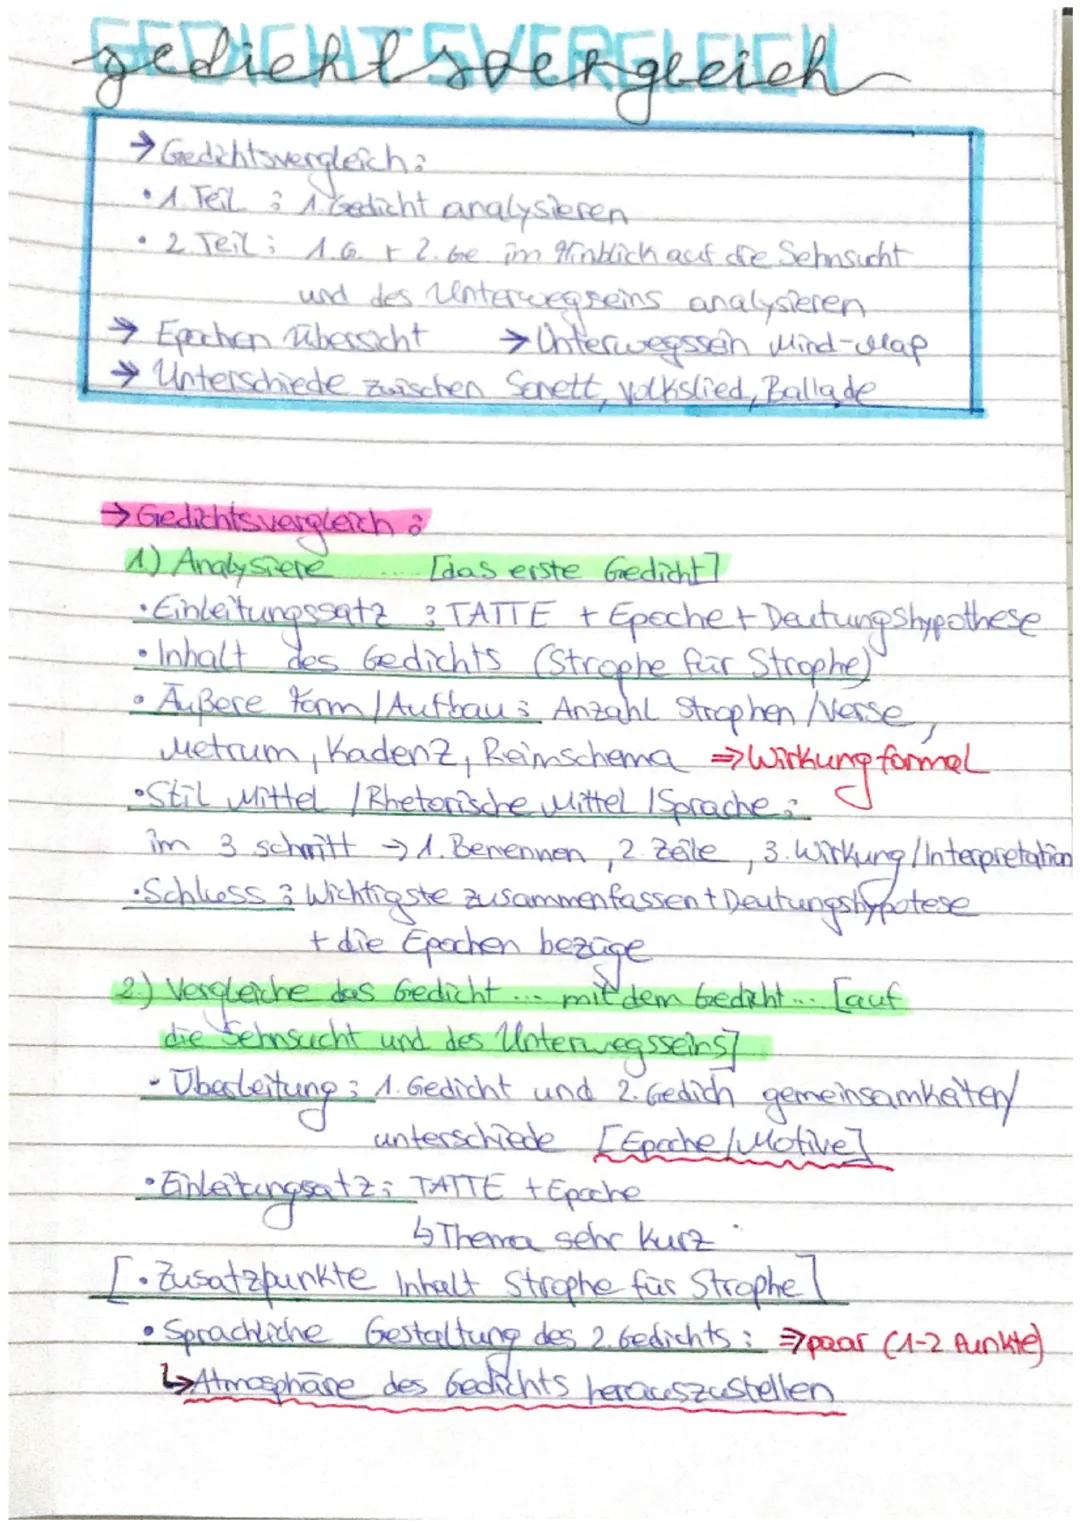 GEDICHTSVERGLEICH
gedichtsvergleich
→ Gedichtsvergleich:
• 1. Teil: 1. Gedicht analysieren
• 2. Teil: 1.G. + 2. Ge im Hinblick auf die Sehnsucht
und des Unterwegseins analysieren
→ Epochen übersicht → Unterwegssein Mind-Map
→ Unterschiede zwischen Sonett, Volkslied, Ballade
→ Gedichtsvergleich:
1) Analysiere .... [das erste Gedicht]
• Einleitungssatz: TATTE + Epoche + Deutungshypothese
• Inhalt des Gedichts (Strophe für Strophe)
• Äußere Form / Aufbau: Anzahl Strophen / Verse,
Metrum, Kadenz, Reimschema ⇒ Wirkung formal
• Stil Mittel / Rhetorische Mittel / Sprache:
im 3 schritt → 1. Benennen, 2. Zeile, 3. Wirkung / Interpretation
• Schluss: Wichtigste zusammenfassen + Deutungshypotese
+ die Epochen bezüge
2.) Vergleiche das Gedicht ... mit dem Gedicht ... [auf
die Sehnsucht und des Unterwegsseins]
• Überleitung: 1. Gedicht und 2. Gedich gemeinsamkeiten/
unterschiede [Epoche / Motive]
• Einleitungsatz: TATTE + Epoche
↳ Thema sehr kurz
[• Zusatzpunkte Inhalt Strophe für Strophe]
• Sprachliche Gestaltung des 2. Gedichts: ⇒ paar (1-2 Punkte)
↳ Atmosphäre des Gedichts herauszustellen